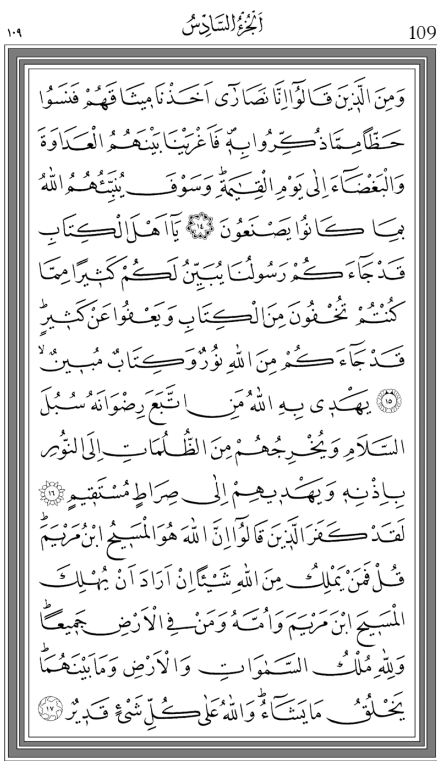 ١٠٩ اَلْجُزْءُ السَّادِسُ 109
وَمِنَ الَّذ۪ينَ قَالُٓوا اِنَّا نَصَارٰٓى اَخَذْنَا م۪يثَاقَهُمْ فَنَسُوا
حَظًّا مِمَّا ذُكِّرُوا بِه۪ۖ فَاَغْرَيْنَا بَيْنَهُمُ الْعَدَاوَةَ
وَالْبَغْضَٓاءَ اِلٰى يَوْمِ الْقِيٰمَةِۜ وَسَوْفَ يُنَبِّئُهُمُ اللّٰهُ
بِمَا كَانُوا يَصْنَعُونَ ﴿١٤﴾ يَٓا اَهْلَ الْكِتَابِ
قَدْ جَٓاءَكُمْ رَسُولُنَا يُبَيِّنُ لَكُمْ كَث۪يرًا مِمَّا
كُنْتُمْ تُخْفُونَ مِنَ الْكِتَابِ وَيَعْفُوا عَنْ كَث۪يرٍۜ
قَدْ جَٓاءَكُمْ مِنَ اللّٰهِ نُورٌ وَكِتَابٌ مُب۪ينٌۙ
﴿١٥﴾ يَهْد۪ي بِهِ اللّٰهُ مَنِ اتَّبَعَ رِضْوَانَهُ سُبُلَ
السَّلَامِ وَيُخْرِجُهُمْ مِنَ الظُّلُمَاتِ اِلَى النُّورِ
بِاِذْنِه۪ وَيَهْد۪يهِمْ اِلٰى صِرَاطٍ مُسْتَق۪يمٍ ﴿١٦﴾
لَقَدْ كَفَرَ الَّذ۪ينَ قَالُٓوا اِنَّ اللّٰهَ هُوَ الْمَس۪يحُ ابْنُ مَرْيَمَۜ
قُلْ فَمَنْ يَمْلِكُ مِنَ اللّٰهِ شَيْـًٔا اِنْ اَرَادَ اَنْ يُهْلِكَ
الْمَس۪يحَ ابْنَ مَرْيَمَ وَاُمَّهُ وَمَنْ فِي الْاَرْضِ جَم۪يعًاۜ
وَلِلّٰهِ مُلْكُ السَّمٰوَاتِ وَالْاَرْضِ وَمَا بَيْنَهُمَاۜ
يَخْلُقُ مَا يَشَٓاءُۜ وَاللّٰهُ عَلٰى كُلِّ شَيْءٍ قَد۪يرٌ ﴿١٧﴾